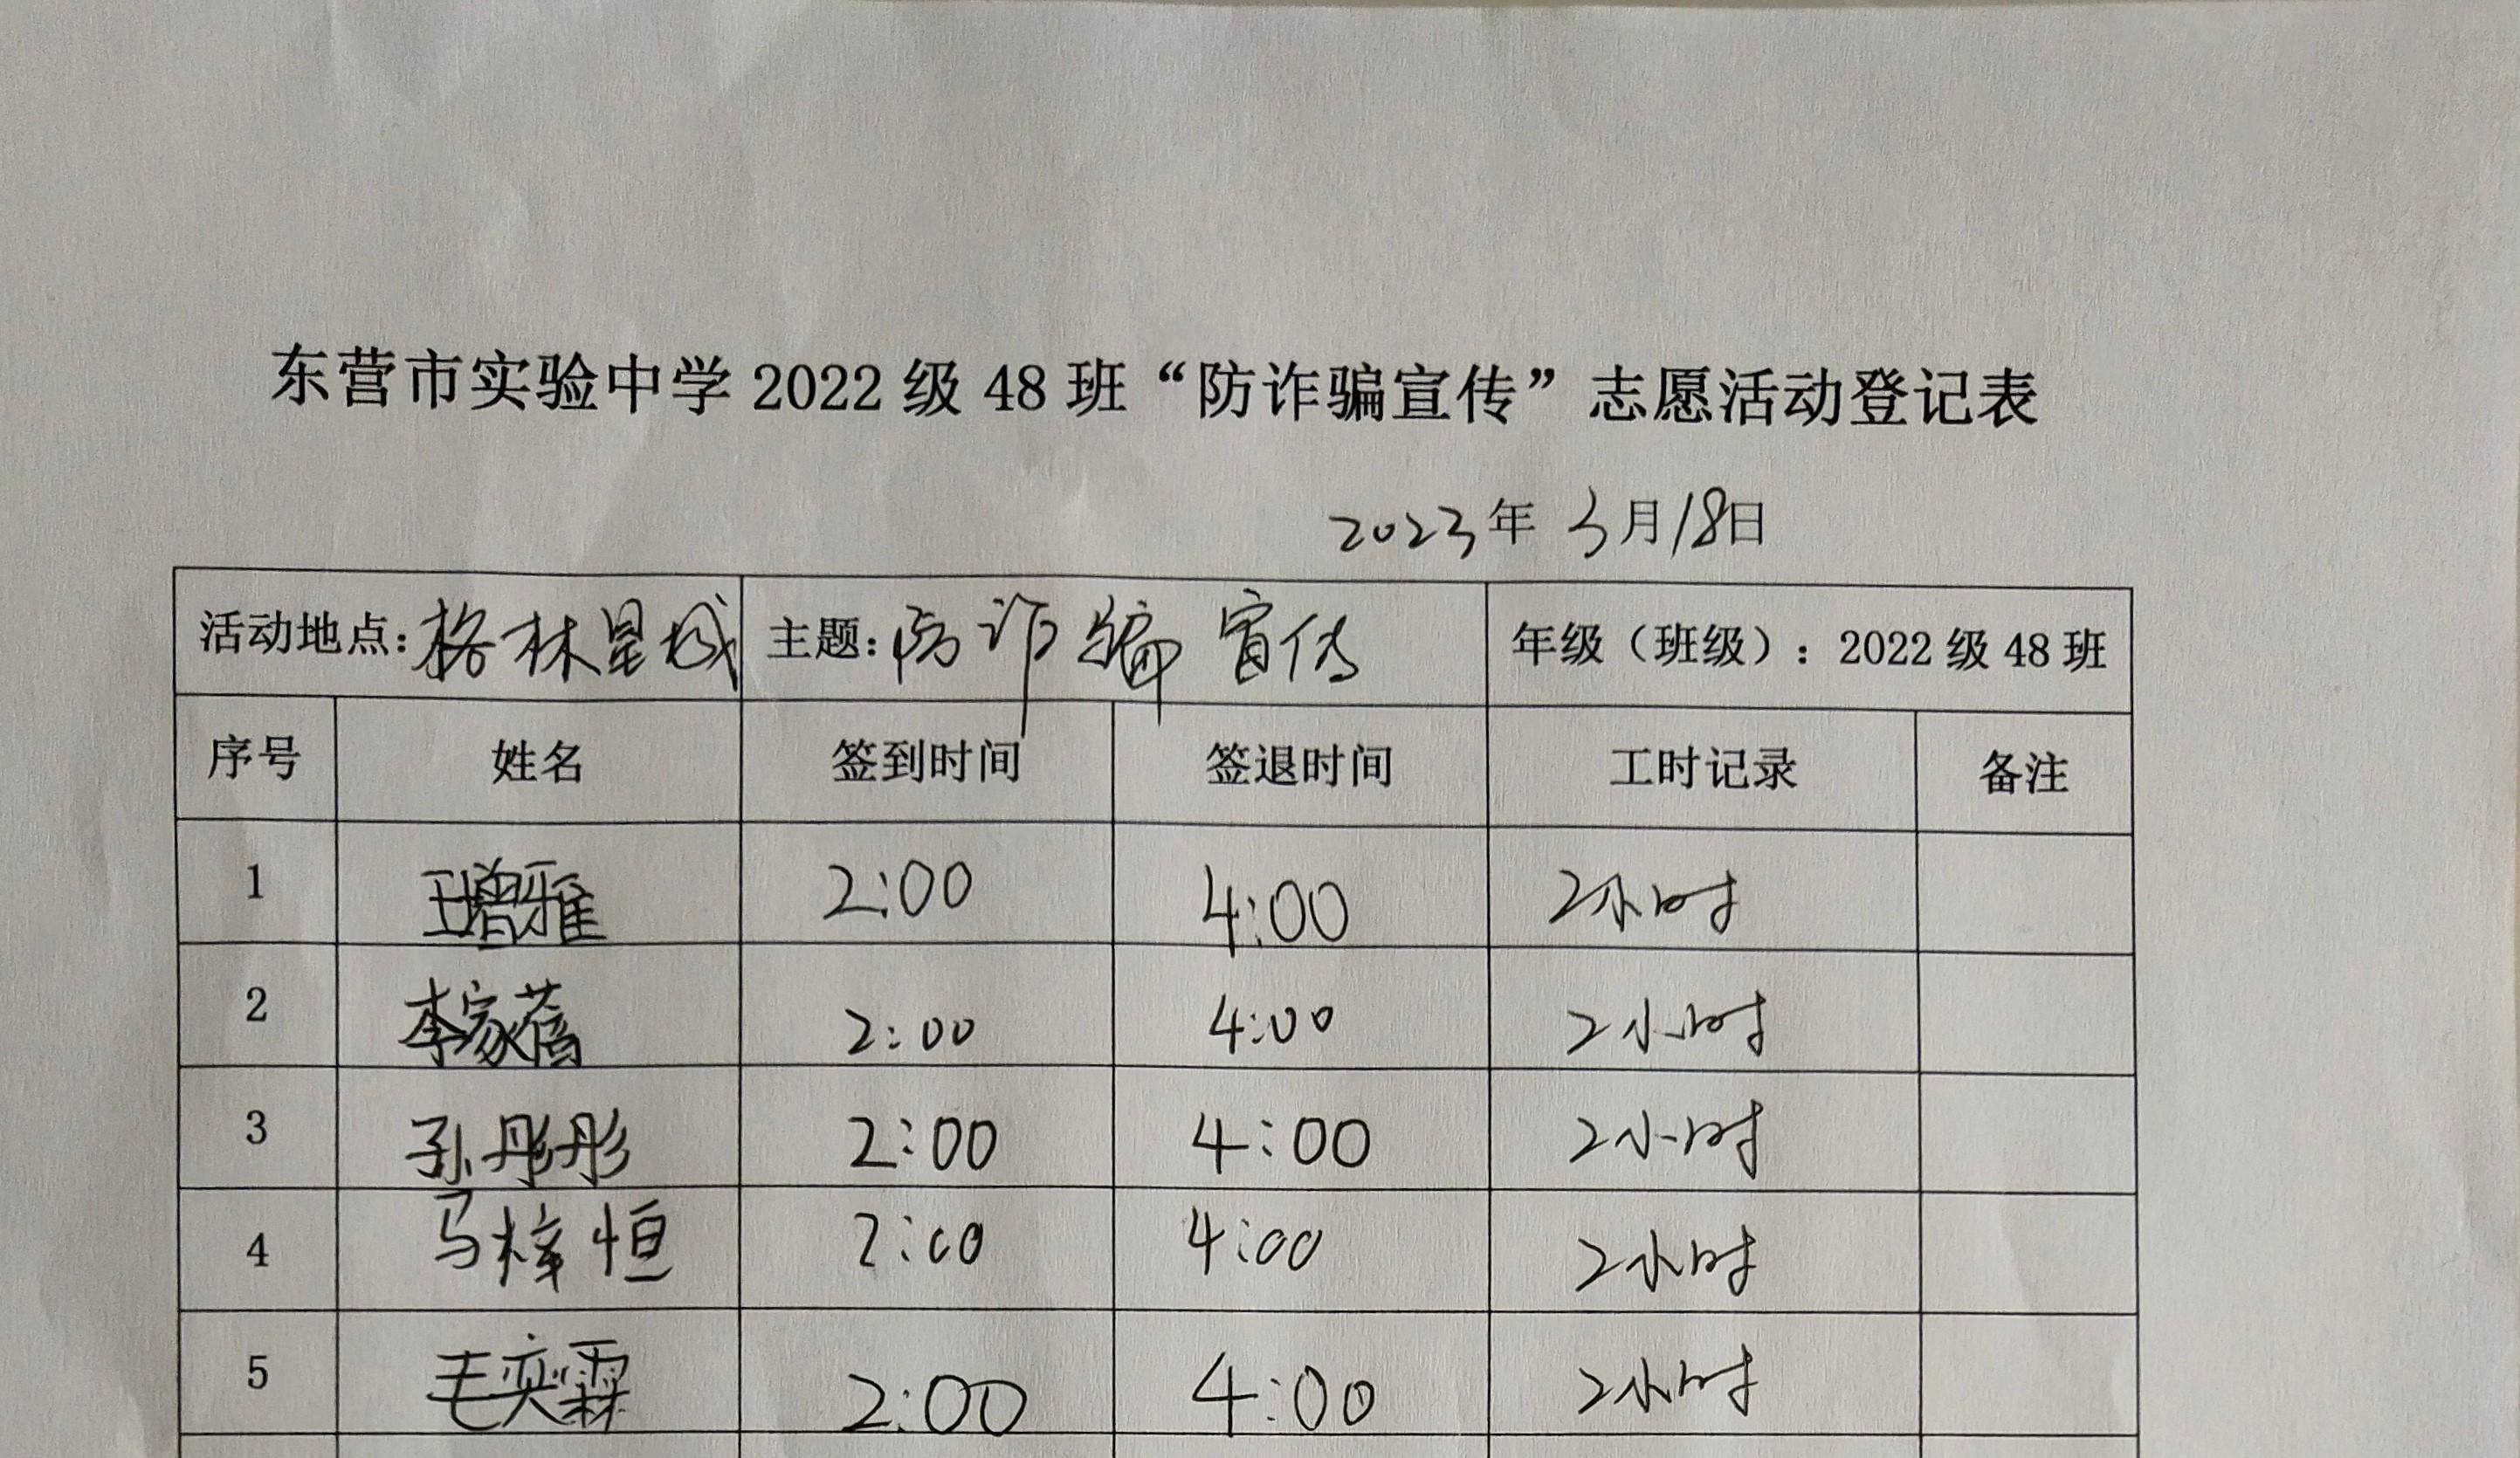 东营市实验中学 2022 级 48 班“防诈骗宣传”志愿活动登记表
2023年 3月18日
活动地点：格林星城 主题：防诈骗宣传 年级（班级）：2022 级 48 班
序号 姓名 签到时间 签退时间 工时记录 备注
1 王增雅 2:00 4:00 2小时
2 李家蓓 2:00 4:00 2小时
3 孙彤彤 2:00 4:00 2小时
4 马梓恒 2:00 4:00 2小时
5 毛奕霖 2:00 4:00 2小时